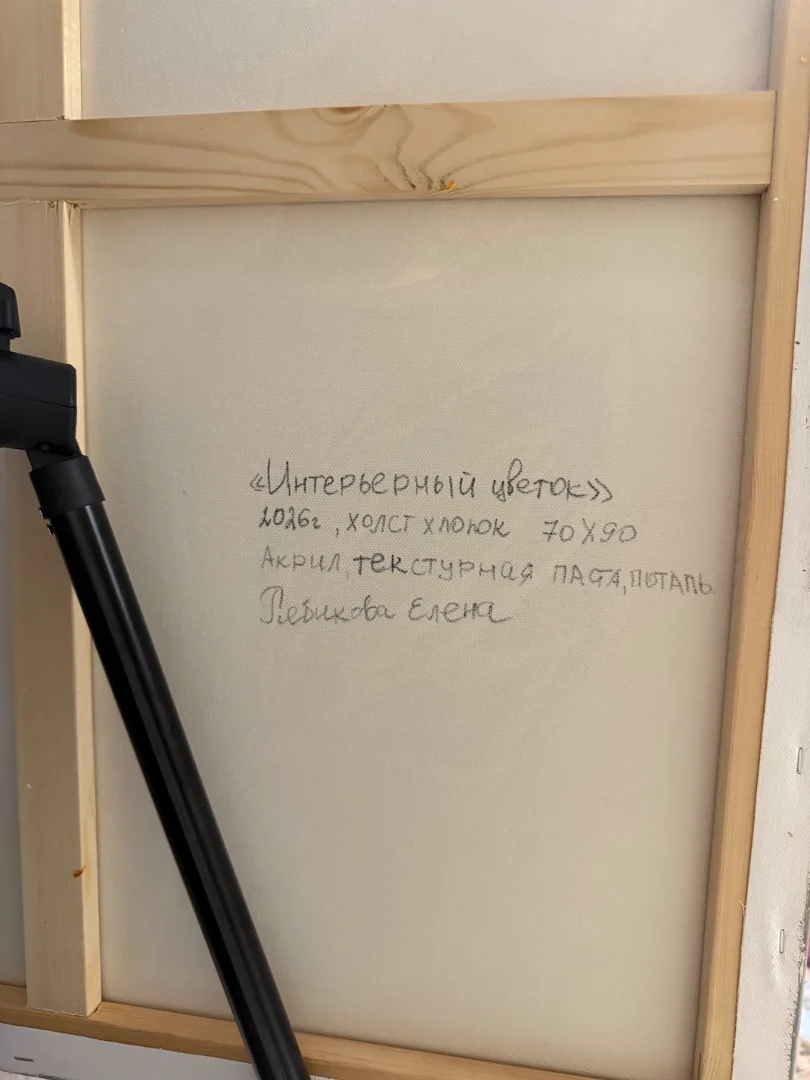 «Интерьерный цветок»
2026г, холст хлопок 70х90
Акрил, текстурная паста, поталь.
Рябикова Елена